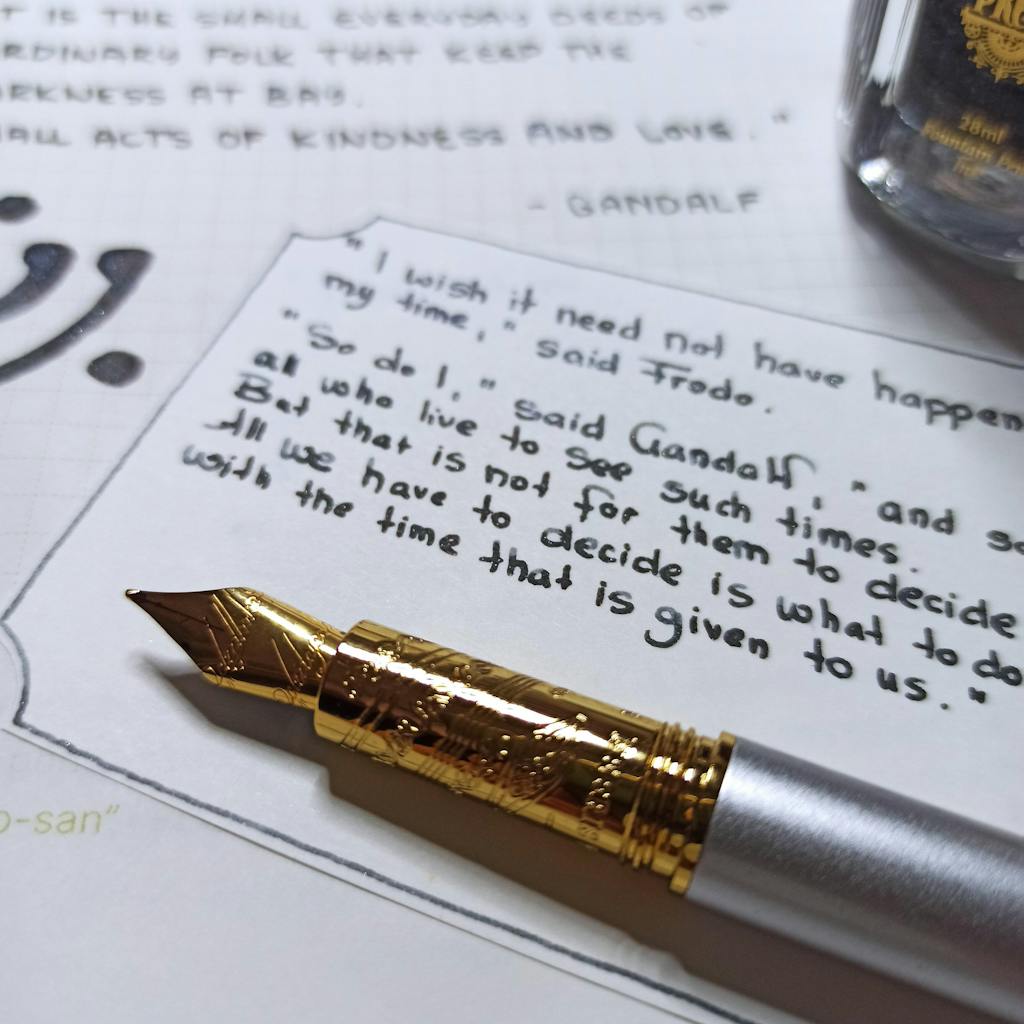 T IS THE SMALL EVERYDAY DEEDS OF
RDINARY FOLK THAT KEEP THE
ARKNESS AT BAY.
ALL ACTS OF KINDNESS AND LOVE."
- GANDALF
28ml
Fountain Pen
"I wish it need not have happen
my time," said Frodo.
"So do I," said Gandalf, "and so
all who live to see such times.
But that is not for them to decide
All we have to decide is what to do
with the time that is given to us."
o-san"